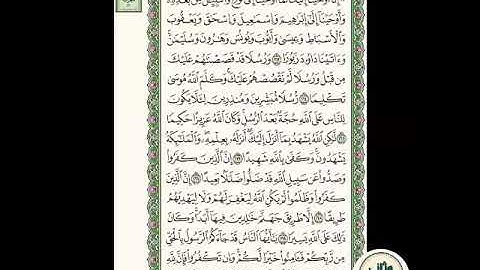 إِنَّا أَوْحَيْنَا إِلَيْكَ كَمَا أَوْحَيْنَا إِلَىٰ نُوحٍ وَالنَّبِيِّينَ مِنْ بَعْدِهِ
وَأَوْحَيْنَا إِلَىٰ إِبْرَاهِيمَ وَإِسْمَاعِيلَ وَإِسْحَاقَ وَيَعْقُوبَ
وَالْأَسْبَاطِ وَعِيسَىٰ وَأَيُّوبَ وَيُونُسَ وَهَارُونَ وَسُلَيْمَانَ
وَآتَيْنَا دَاوُودَ زَبُورًا ١٦٣ وَرُسُلًا قَدْ قَصَصْنَاهُمْ عَلَيْكَ
مِنْ قَبْلُ وَرُسُلًا لَمْ نَقْصُصْهُمْ عَلَيْكَ وَكَلَّمَ اللَّهُ مُوسَىٰ
تَكْلِيمًا ١٦٤ رُسُلًا مُبَشِّرِينَ وَمُنْذِرِينَ لِئَلَّا يَكُونَ
لِلنَّاسِ عَلَى اللَّهِ حُجَّةٌ بَعْدَ الرُّسُلِ وَكَانَ اللَّهُ عَزِيزًا حَكِيمًا
١٦٥ لَٰكِنِ اللَّهُ يَشْهَدُ بِمَا أَنْزَلَ إِلَيْكَ أَنْزَلَهُ بِعِلْمِهِ وَالْمَلَائِكَةُ
يَشْهَدُونَ وَكَفَىٰ بِاللَّهِ شَهِيدًا ١٦٦ إِنَّ الَّذِينَ كَفَرُوا
وَصَدُّوا عَنْ سَبِيلِ اللَّهِ قَدْ ضَلُّوا ضَلَالًا بَعِيدًا ١٦٧ إِنَّ الَّذِينَ
كَفَرُوا وَظَلَمُوا لَمْ يَكُنِ اللَّهُ لِيَغْفِرَ لَهُمْ وَلَا لِيَهْدِيَهُمْ
طَرِيقًا ١٦٨ إِلَّا طَرِيقَ جَهَنَّمَ خَالِدِينَ فِيهَا أَبَدًا وَكَانَ
ذَٰلِكَ عَلَى اللَّهِ يَسِيرًا ١٦٩ يَا أَيُّهَا النَّاسُ قَدْ جَاءَكُمُ الرَّسُولُ بِالْحَقِّ
مِنْ رَبِّكُمْ فَآمِنُوا خَيْرًا لَكُمْ وَإِنْ تَكْفُرُوا فَإِنَّ لِلَّهِ